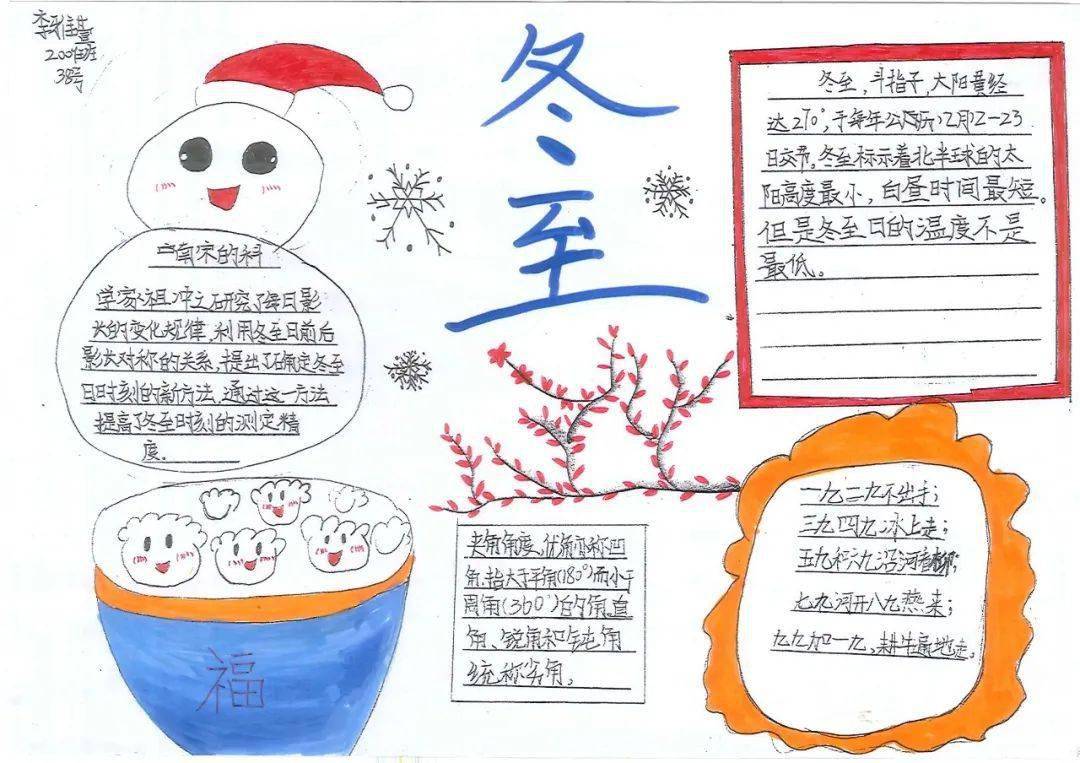 2001班
38号
冬至
南宋的科
学家祖冲之研究了每日影
长的变化规律,利用冬至日前后
影长对称的关系,提出了确定冬至
日时刻的新方法,通过这一方法
提高了冬至时刻的测定精
度。
冬至,斗指子,太阳黄经
达270°,于每年公历12月2-23
日交节。冬至标示着北半球的太
阳高度最小,白昼时间最短。
但是冬至日的温度不是
最低。
福
夹角角度,优角亦称凹
角,指大于平角(180°)而小于
周角(360°)的角。直
角、锐角和钝角
统称劣角。
一九二九不出手;
三九四九冰上走;
五九和六九沿河看柳;
七九河开八九燕来;
九九加一九,耕牛遍地走。